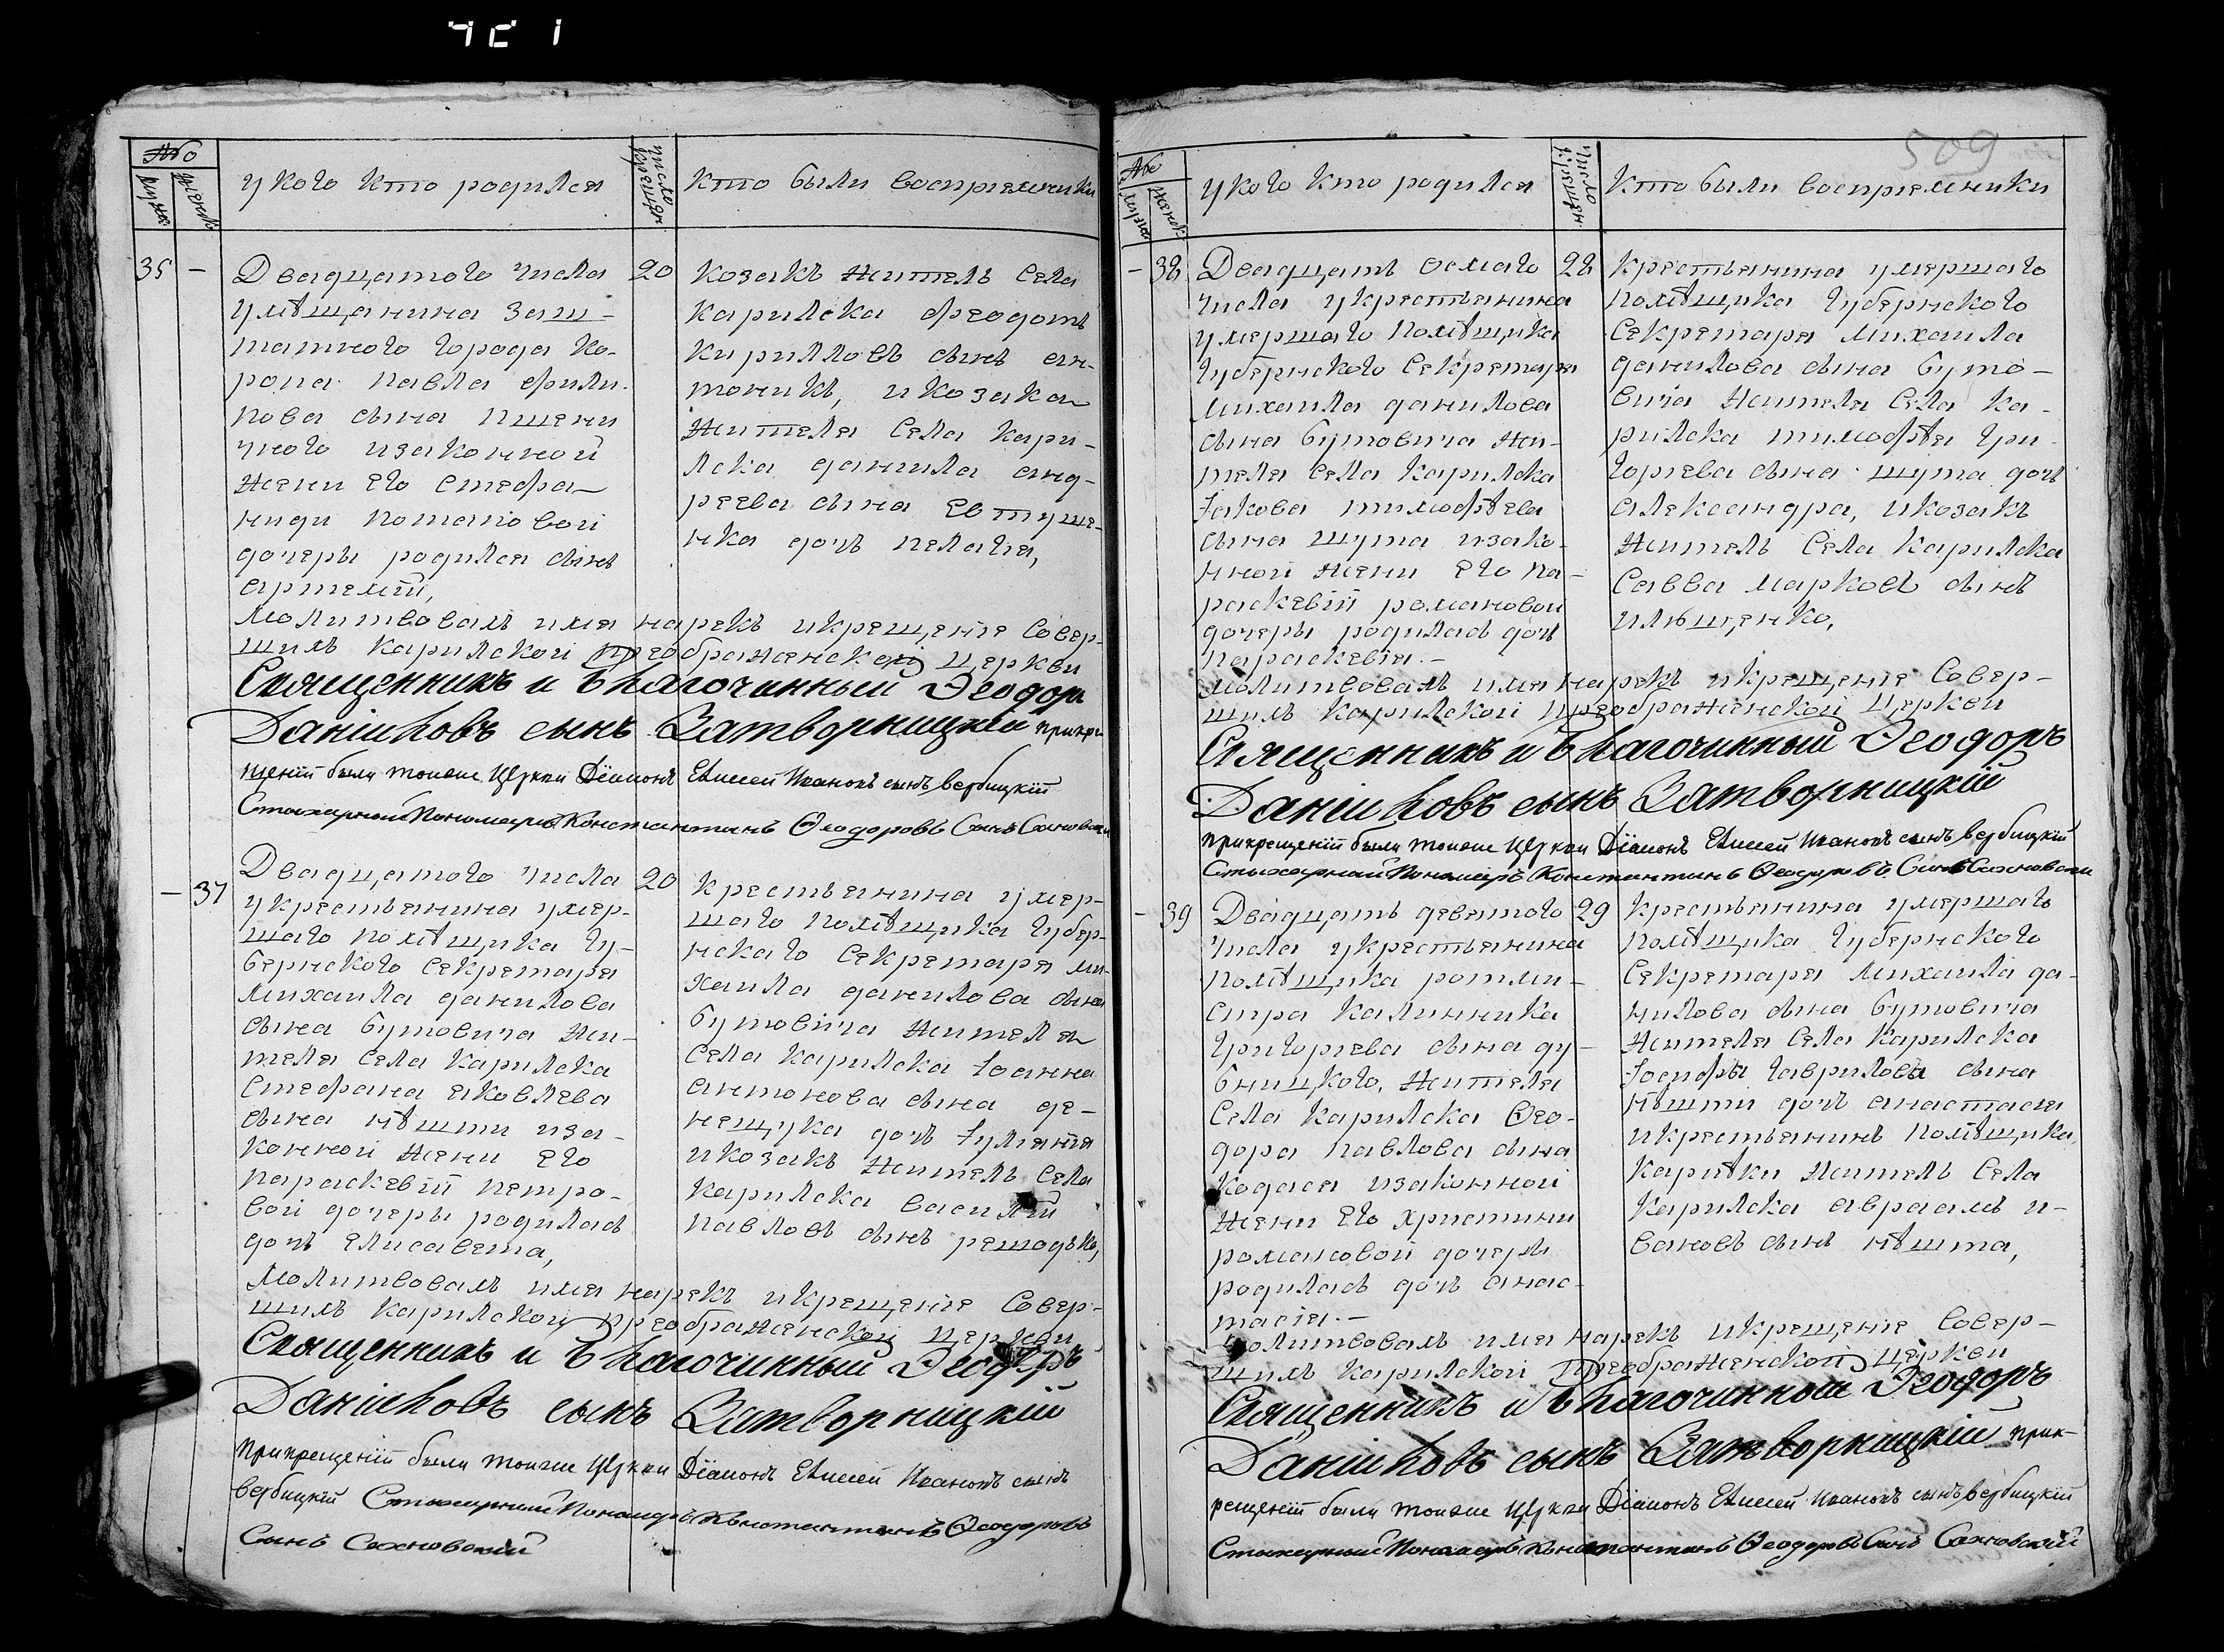 509
№
мужеск
женск
у кого кто родился
число крещен
кто были восприемники
35 –
Двадцатого числа
у мѣщанина заш-
татного города Ко-
ропа павла фили-
пова сына пшени
чного и законной
жены его стефа-
ниди потаповой
дочеры родился сынъ
артемій,
20
козакъ житель села
карилска феодотъ
кириловъ сынъ ан-
тоникъ, и козака
жителя села кари-
лска данила анд-
реева сына евтуше-
нка дочь пелагія,
молитвовалъ имя нарекъ и крещеніе совер-
шилъ карилской преображенской церкви
Священникъ и Благочинный Ѳеодоръ
Даніиловъ сынъ Затворницкій при кре
щеніи были тоиже церкви Діаконъ Елисей Ивановъ сынъ Вербицкій
Стихарный Пономаръ Константинъ Ѳеодоровъ Сынъ Сахновскій
– 37
Двадцатого числа
у крестьянина умер-
шаго помѣщика гу-
бернского секретаря
михаила данилова
сына бутовича жи-
теля села карилска
стефана яковлева
сына кѣшти и за-
конной жени его
параскевіи петро-
вой дочеры родилась
дочь елисавета,
20
крестьянина умер-
шаго помѣщика губер-
нскаго секретаря ми-
хаила данилова сына
бутовича жителя
села карилска Іоанна
антонова сына де-
нещука дочь Іуліанія
и козакъ житель села
карилска василій
павловъ сынъ решодько,
молитвовалъ имя нарекъ и крещеніе совер-
шилъ карилской преображенской церкви
Священникъ и Благочинный Ѳеодоръ
Даніиловъ сынъ Затворницкій
при крещеніи были тоиже церкви Діаконъ Елисей Ивановъ сынъ
Вербицкій Стихарный Пономаръ Константинъ Ѳеодоровъ
Сынъ Сахновскій
№
мужеск
женск
у кого кто родился
число крещен
кто были восприемники
– 38
Двадцать осмаго
числа у крестьянина
умершаго помѣщика
губернского секретаря
михаила данилова
сына бутовича жи-
теля села карилска
Іакова тимофѣева
сына шута и зако-
нной жени его па-
раскевіи романовой
дочеры родилась дочь
параскевія.–
28
крестьянина умершаго
помѣщика губернского
секретаря михаила
данилова сына буто-
вича жителя села ка-
рилска тимофѣя гри-
гориева сына шута дочь
александра, и козакъ
житель села карилска
савва марковъ сынъ
ильященко,
молитвовалъ имя нарекъ и крещеніе совер-
шилъ карилской преображенской церкви
Священникъ и Благочинный Ѳеодоръ
Даніиловъ сынъ Затворницкій
при крещеніи были тоиже церкви Діаконъ Елисей Ивановъ сынъ Вербицкій
Стихарный Пономаръ Константинъ Ѳеодоровъ Сынъ Сахновскій
– 39
Двадцать девятого
числа у крестьянина
помѣщика ротми-
стра калинника
григориева сына ду-
бницкого, жителя
села карилска Ѳео-
дора павлова сына
кодася и законной
жени его христини
романовой дочеры
родилась дочь анас-
тасія.–
29
крестьянина умершаго
помѣщика губернского
секретаря михаила да-
нилова сына бутовича
жителя села карилска
Іосифа гаврилова сына
кѣшти дочь анастасія
и крестьянинъ помѣщика
карпѣки житель села
карилска авраамъ и-
вановъ сынъ кѣшта,
молитвовалъ имя нарекъ и крещеніе совер-
шилъ карилской преображенской церкви
Священникъ и Благочинный Ѳеодоръ
Даніиловъ сынъ Затворницкій при к-
рещеніи были тоиже церкви Діаконъ Елисей Ивановъ сынъ Вербицкій
Стихарный Пономаръ Константинъ Ѳеодоровъ Сынъ Сахновскій